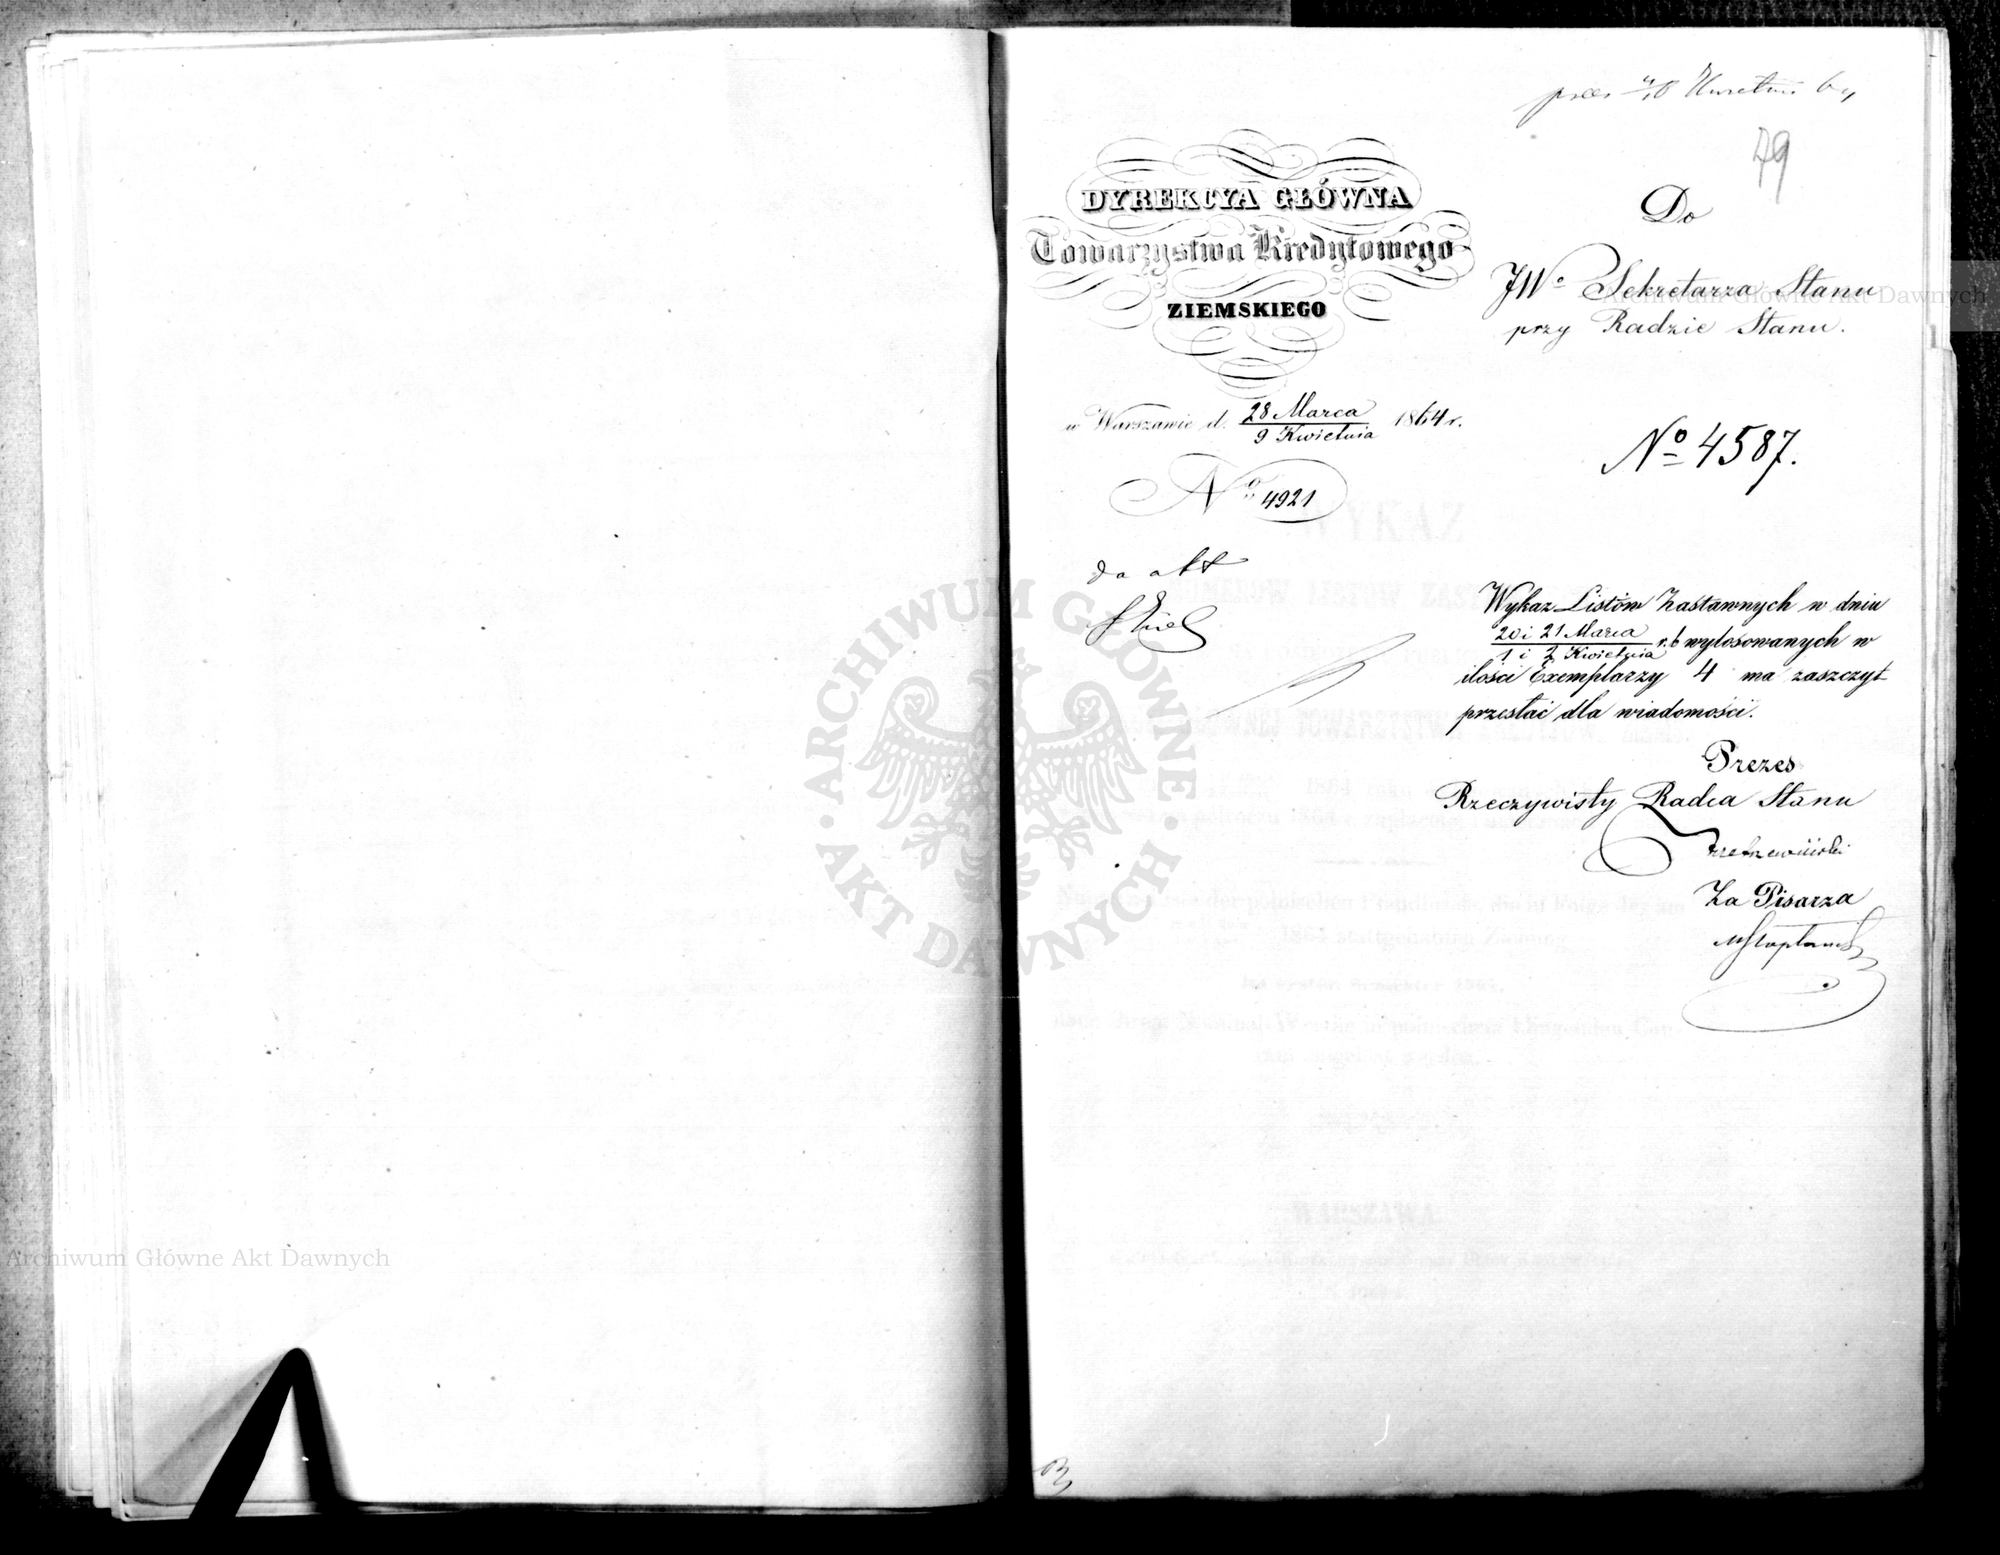 79
DYREKCYA GŁÓWNA
Towarzystwa Kredytowego
ZIEMSKIEGO
w Warszawie d. 28 Marca / 9 Kwietnia 1864 r.
No 4921
do akt
Do
JWo Sekretarza Stanu
przy Radzie Stanu.
No 4587.
Wykaz Listów Zastawnych w dniu
20 i 21 Marca / 1 i 2 Kwietnia r. b wylosowanych w
ilości Exemplarzy 4 ma zaszczyt
przesłać dla wiadomości.
Prezes
Rzeczywisty Radca Stanu
Za Pisarza
WYKAZ
1864
WARSZAWA
ARCHIWUM GŁÓWNE AKT DAWNYCH
Archiwum Główne Akt Dawnych
Archiwum Główne Akt Dawnych